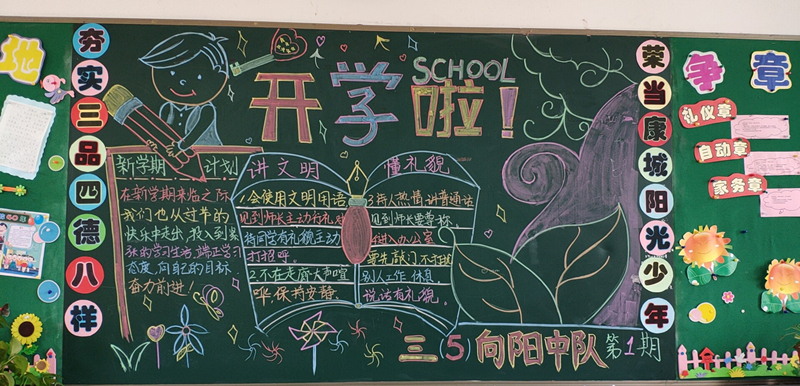 夯实三品四德八样
荣当康城阳光少年
SCHOOL
开学啦!
新学期 计划
在新学期来临之际
我们也从过年的
快乐中走出,投入到紧
张的学习生活,端正学习
态度,向自己的目标
奋力前进!
讲文明
1.会使用文明用语
见到师长主动行礼
待同学有礼貌主动
打招呼。
2.不在走廊大声喧
哗保持安静。
懂礼貌
热情,讲普通话
见到师长要尊称。
进入办公室
要先敲门不打扰
别人工作休息。
说话有礼貌。
三(5)向阳中队 第1期
争 章
礼仪章
自动章
家务章